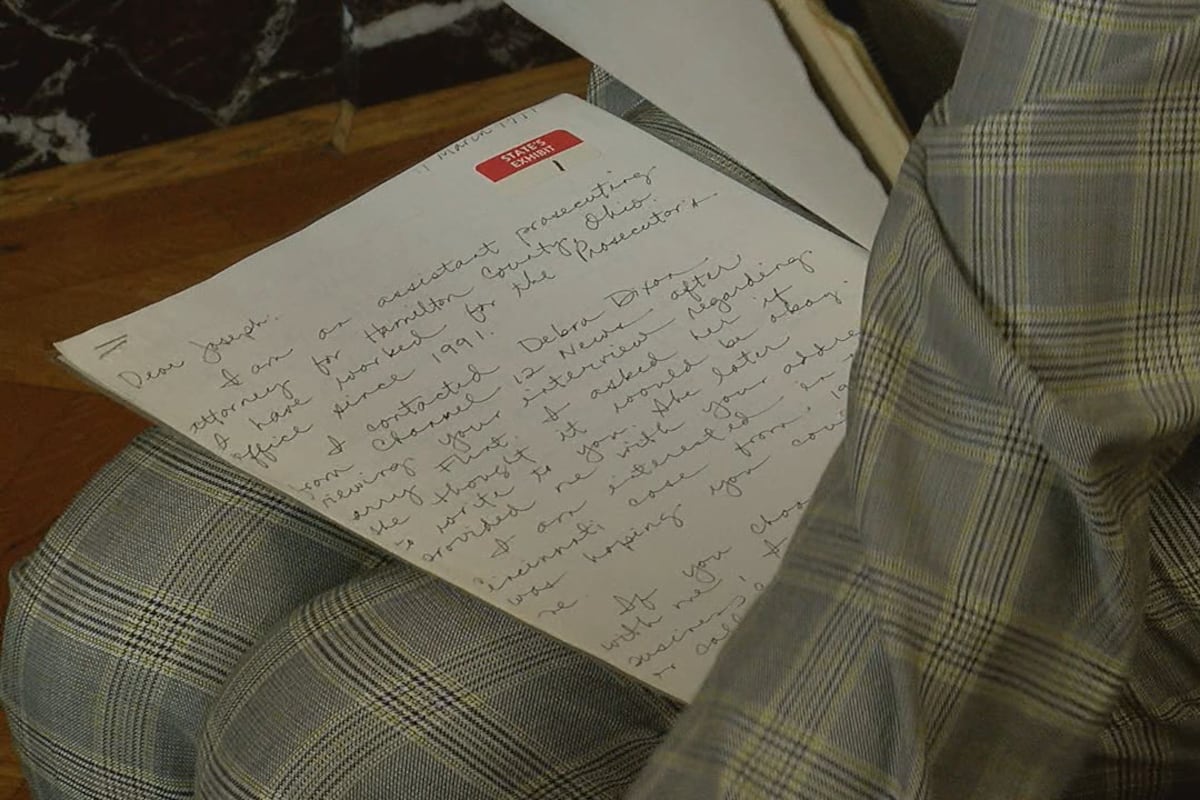 March
STATE'S
EXHIBIT
1
Dear Joseph,
I am an assistant prosecuting
attorney for Hamilton County, Ohio.
I have worked for the Prosecutor's
office since 1991.
I contacted Debra Dixon
from Channel 12 News after
viewing your interview regarding
arry Flint. I asked her if
she thought it would be okay
to write to you. She later
provided me with your addre
I am interested in
Cincinnati case from 19
was hoping you cou
me.
If you choo
with me, I
business
or call